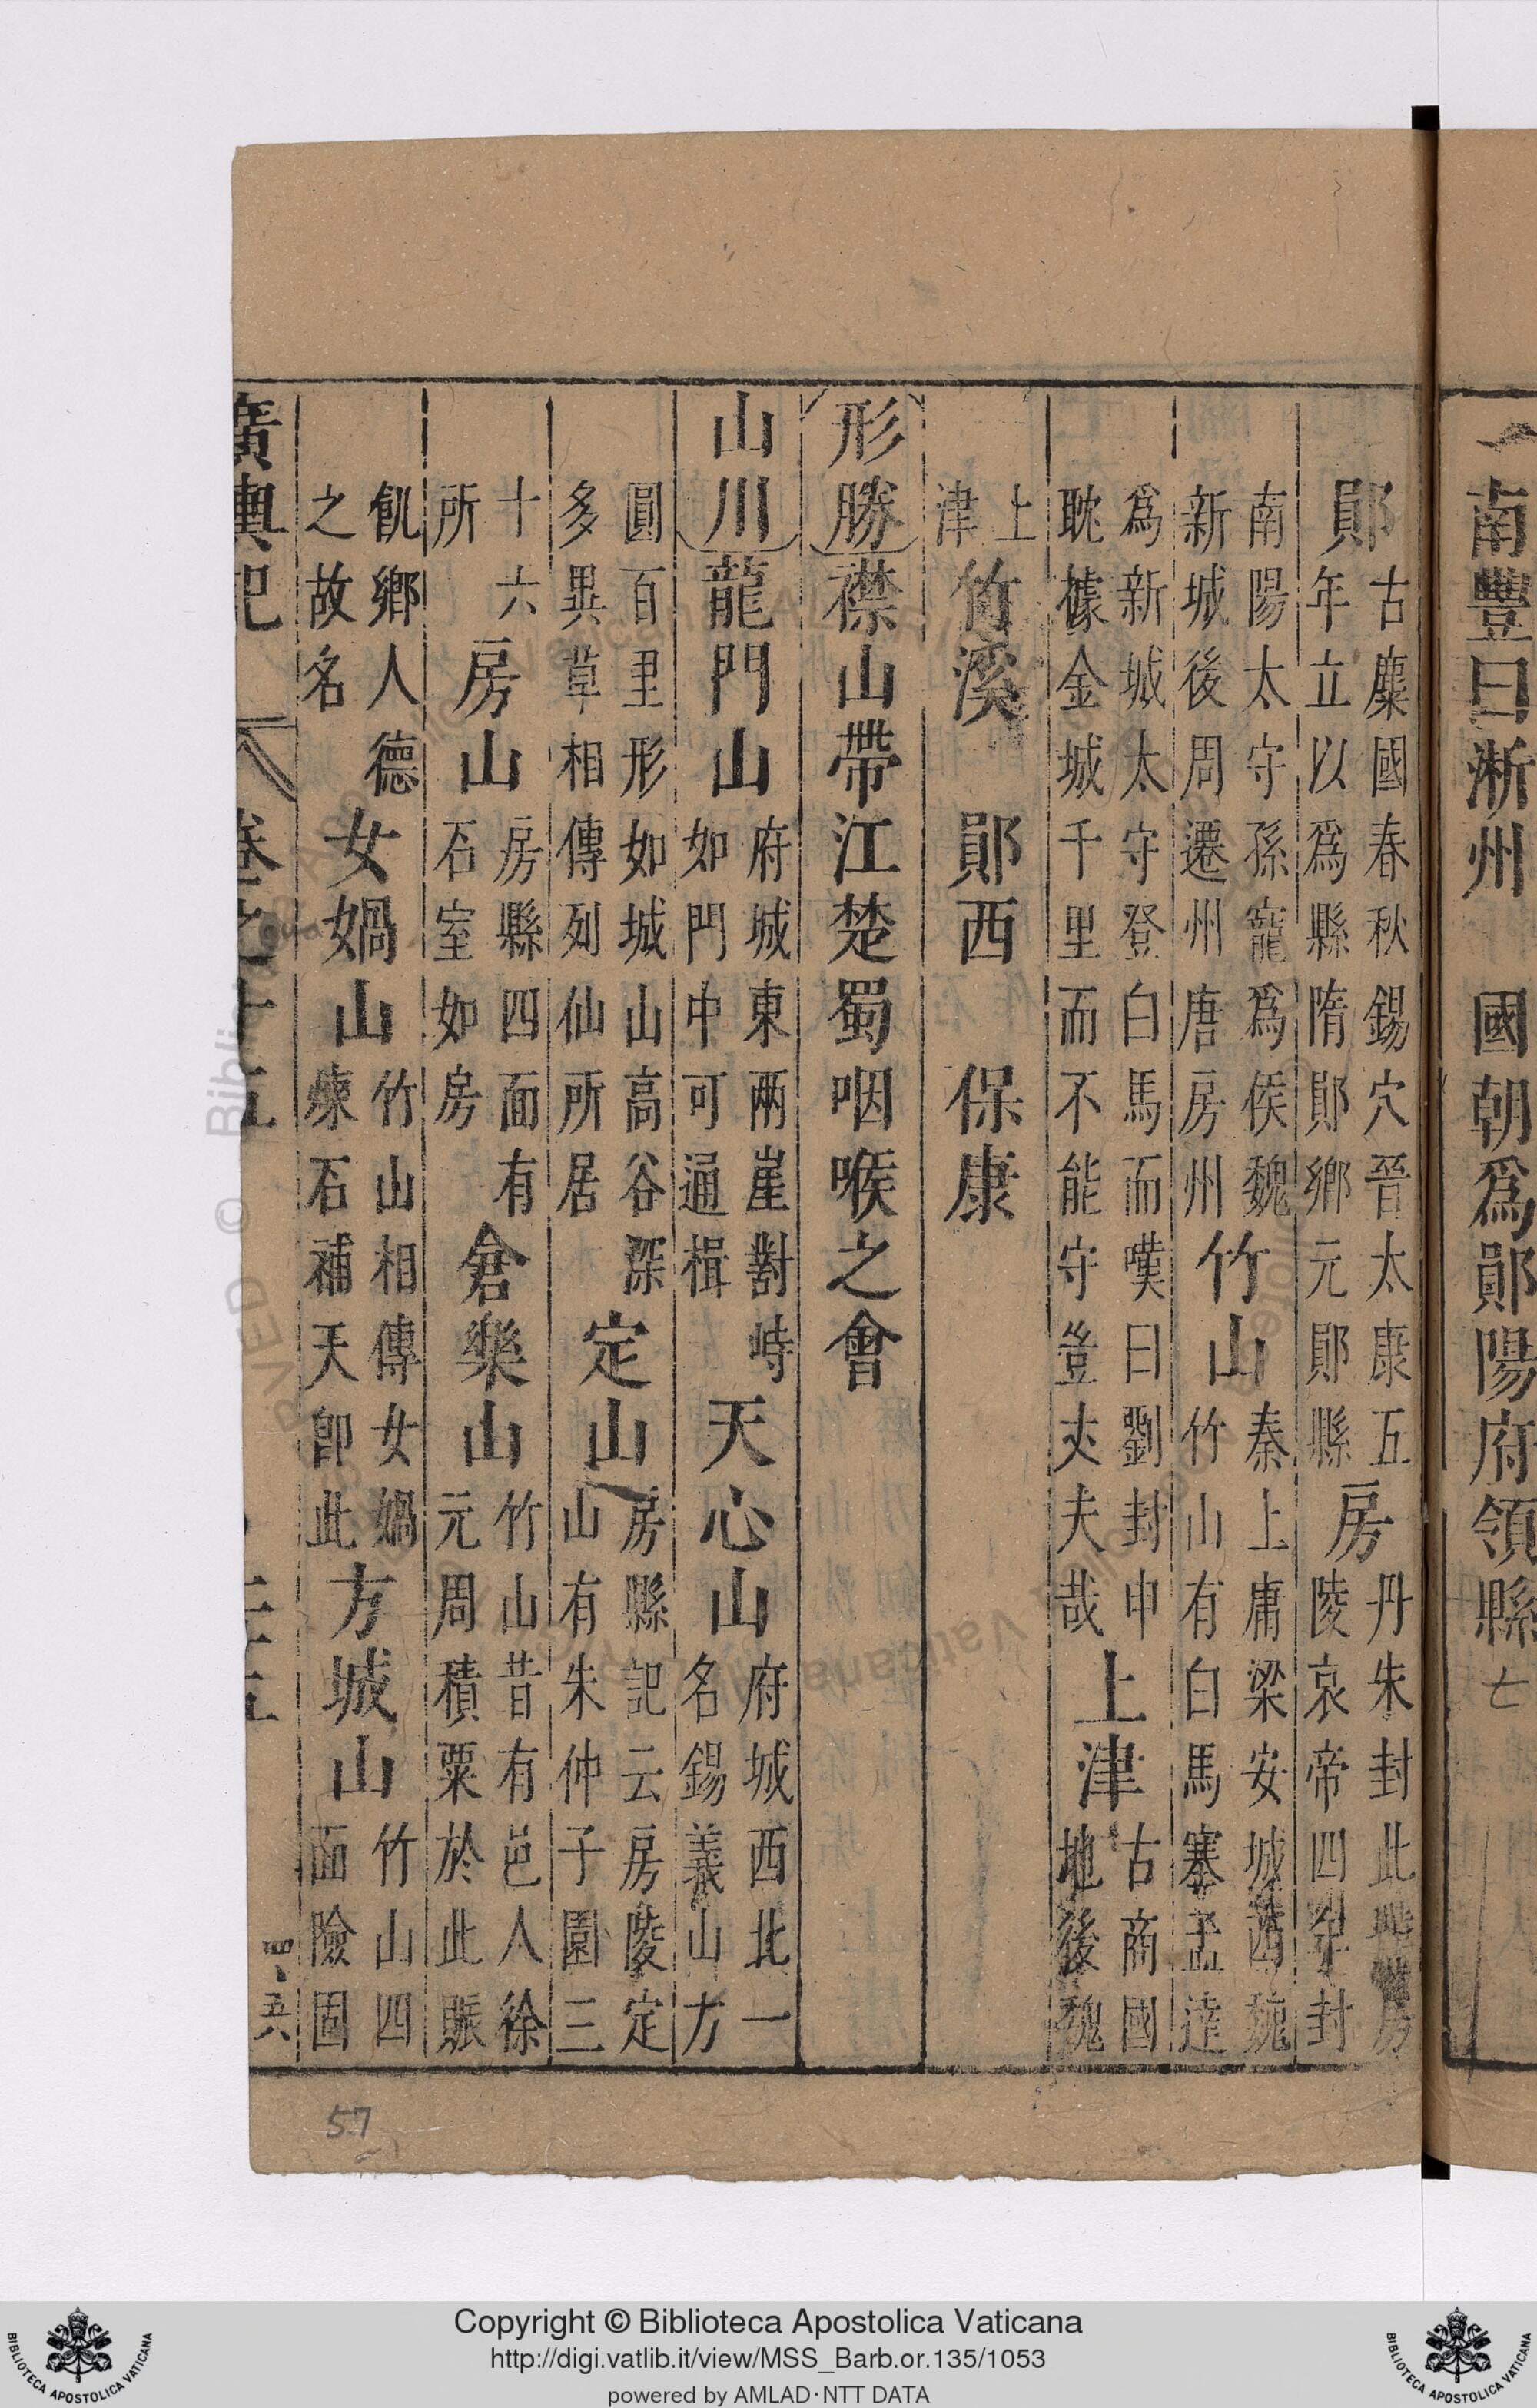 南豐曰淅州 國朝爲鄖陽府領縣七
鄖 古麇國春秋錫穴晉太康五
年立以爲縣隋鄖鄉元鄖縣 房 丹朱封此
陵哀帝四年封
南陽太守孫寵爲侯魏
新城後周遷州唐房州 竹山 秦上庸梁安城西魏
竹山有白馬塞孟達
爲新城太守登白馬而嘆曰劉封申
耽據金城千里而不能守豈丈夫哉 上津 古商國
地後魏
上
津 竹溪 鄖西 保康
形勝 襟山帶江楚蜀咽喉之會
山川 龍門山 府城東兩崖對峙
如門中可通楫 天心山 府城西北一
名錫義山方
圓百里形如城山高谷深
多異草相傳列仙所居 定山 房縣記云房陵定
山有朱仲子園三
十六
所 房山 房縣四面有
石室如房 倉樂山 竹山昔有邑人徐
元周積粟於此賑
飢鄉人德
之故名 女媧山 竹山相傳女媧
煉石補天卽此 方城山 竹山四
面險固
廣輿記 卷之十五
57
Copyright © Biblioteca Apostolica Vaticana
http://digi.vatlib.it/view/MSS_Barb.or.135/1053
powered by AMLAD·NTT DATA